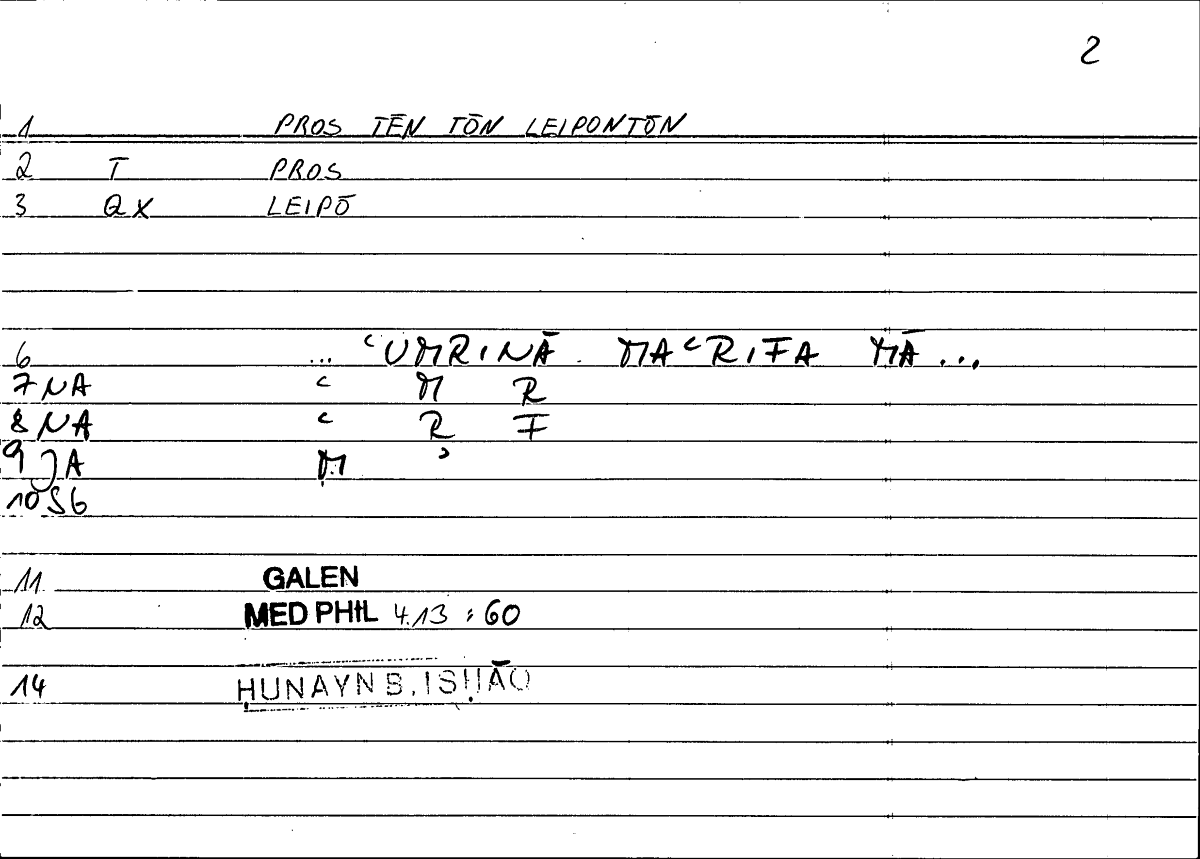 2
1 PROS TĒN TŌN LEIPONTŌN
2 T PROS
3 QX LEIPŌ
6 ... ʿUMRINĀ MAʿRIFA MĀ...
7 NA ʿ M R
8 NA ʿ R F
9 JA M ʾ
10 SG
11 GALEN
12 MED PHIL 4.13 : 60
14 ḤUNAYN B. ISḤĀQ